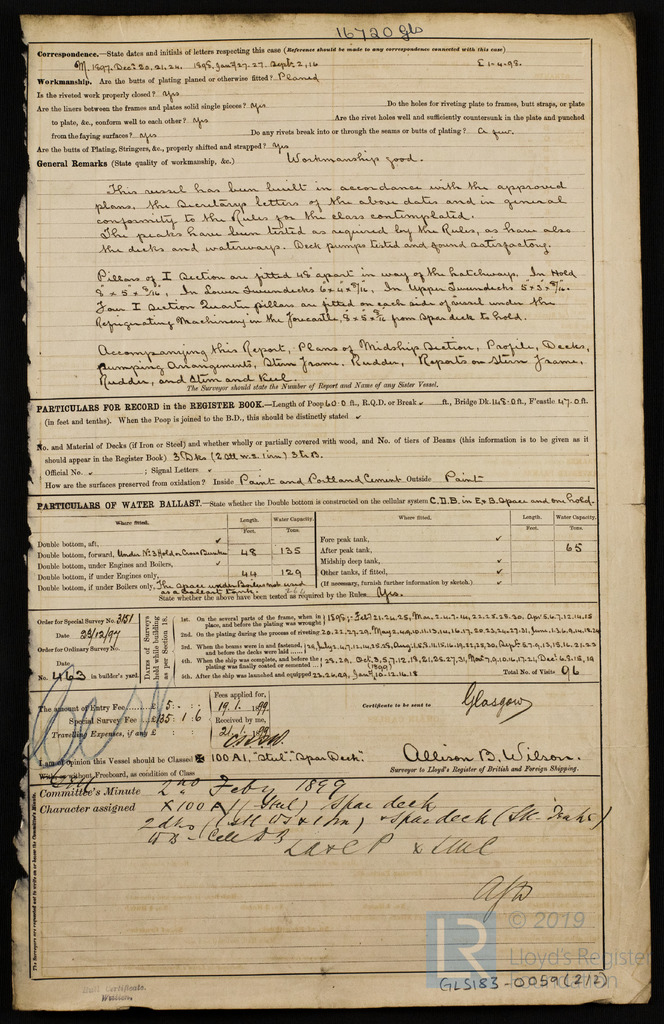 16720 Gls
Correspondence.—State dates and initials of letters respecting this case (Reference should be made to any correspondence connected with this case)
M. 1897. Dec 20. 21. 24. 1898. Jany 17. 27. Sept 2, 16 E 1-4-98.
Workmanship. Are the butts of plating planed or otherwise fitted? Planed
Is the riveted work properly closed? Yes
Are the liners between the frames and plates solid single pieces? Yes Do the holes for riveting plate to frames, butt straps, or plate
to plate, &c., conform well to each other? Yes Are the rivet holes well and sufficiently countersunk in the plate and punched
from the faying surfaces? Yes Do any rivets break into or through the seams or butts of plating? A few.
Are the butts of Plating, Stringers, &c., properly shifted and strapped? Yes
General Remarks (State quality of workmanship, &c.) Workmanship good.
This vessel has been built in accordance with the approved
plans, the Secretarys letters of the above dates and in general
conformity to the Rules for the class contemplated.
The peaks have been tested as required by the Rules, as have also
the decks and waterways. Deck pumps tested and found satisfactory.
Pillars of I section are fitted 48" apart in way of the hatchways. In Hold
8" x 5" x 8/16, In Lower Tweendecks 6" x 4" x 8/16, In Upper Tweendecks 5" x 3" x 8/16.
Four I section Quarter pillars are fitted on each side of vessel under the
Refrigerating Machinery in the Forecastle, 8" x 5" x 8/16 from Spar deck to hold.
Accompanying this Report, Plans of Midship Section, Profile, Decks,
Pumping Arrangements, Stern Frame. Rudder, Reports on Stern Frame,
Rudder, and Stem and Keel.
The Surveyor should state the Number of Report and Name of any Sister Vessel.
PARTICULARS FOR RECORD in the REGISTER BOOK.—Length of Poop 60.0 ft., R.Q.D. or Break ✓ ft., Bridge Dk. 148.0 ft., F'castle 47.0 ft.
(in feet and tenths). When the Poop is joined to the B.D., this should be distinctly stated ✓
No. and Material of Decks (if Iron or Steel) and whether wholly or partially covered with wood, and No. of tiers of Beams (this information is to be given as it
should appear in the Register Book) 3 Dks (2 Stl w.s. 1 irn) 3 t B.
Official No. ✓ ; Signal Letters ✓
How are the surfaces preserved from oxidation? Inside Paint and Portland Cement Outside Paint
PARTICULARS OF WATER BALLAST.—State whether the Double bottom is constructed on the cellular system C.D.B. in E & B. Space and one hold.
Where fitted. Length. Water Capacity. Where fitted. Length. Water Capacity.
Feet. Tons. Feet. Tons.
Double bottom, aft, ✓ Fore peak tank, ✓
Double bottom, forward, Under No. 3 Hold or Cross Bunker 48 135 After peak tank, 65
Double bottom, under Engines and Boilers, ✓ Midship deep tank, ✓
Double bottom, if under Engines only, 44 129 Other tanks, if fitted, ✓
Double bottom, if under Boilers only, The space under Boilers not used as a Ballast tank. 264 (If necessary, furnish further information by sketch.) ✓
State whether the above have been tested as required by the Rules Yes.
Order for Special Survey No. 3151
Date 23/12/97
Order for Ordinary Survey No.
Date
No. 463 in builder's yard.
Dates of Surveys held while building as per Section 18.
1st. On the several parts of the frame, when in place, and before the plating was wrought
2nd. On the plating during the process of riveting
3rd. When the beams were in and fastened, and before the decks were laid
4th. When the ship was complete, and before the plating was finally coated or cemented
5th. After the ship was launched and equipped
Total No. of Visits 96
The amount of Entry Fee £ 5 : :
Special Survey Fee £135 : 1 : 6
Travelling Expenses, if any £ :
Fees applied for,
19. 1. 1899.
Received by me,
21. 1. 99
Certificate to be sent to Glasgow
I am of opinion this Vessel should be Classed ✠ 100 A1, "Steel." "Spar Deck."
With or without Freeboard, as condition of Class
Allison B. Wilson.
Surveyor to Lloyd's Register of British and Foreign Shipping.
Committee's Minute 2nd Feby 1899
Character assigned ✠ 100 A1 (Steel) Spar deck
The Surveyors are requested not to write on or below the Committee's Minute.
LR © 2019
Lloyd's Register
Foundation
GLS183-0059 (2/2)
Hull Certificate.
Written.